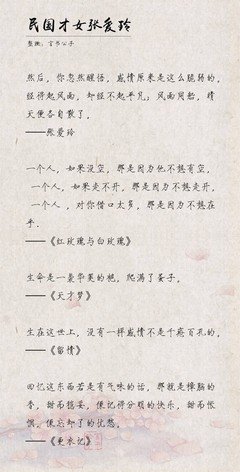 民国才女张爱玲
整理：言书公子
然后，你忽然醒悟，感情原来是这么脆弱的，
经得起风雨，却经不起平凡；风雨同船，晴
天便各自散了。
——张爱玲
一个人，如果没空，那是因为他不想有空，
一个人，如果走不开，那是因为不想走开，
一个人，对你借口太多，那是因为不想在
乎。
——《红玫瑰与白玫瑰》
生命是一袭华美的袍，爬满了蚤子。
——《天才梦》
生在这世上，没有一样感情不是千疮百孔的，
——《留情》
回忆这东西若是有气味的话，那就是樟脑的
香，甜而稳妥，像记得分明的快乐，甜而怅
惘，像忘却了的忧愁。
——《更衣记》